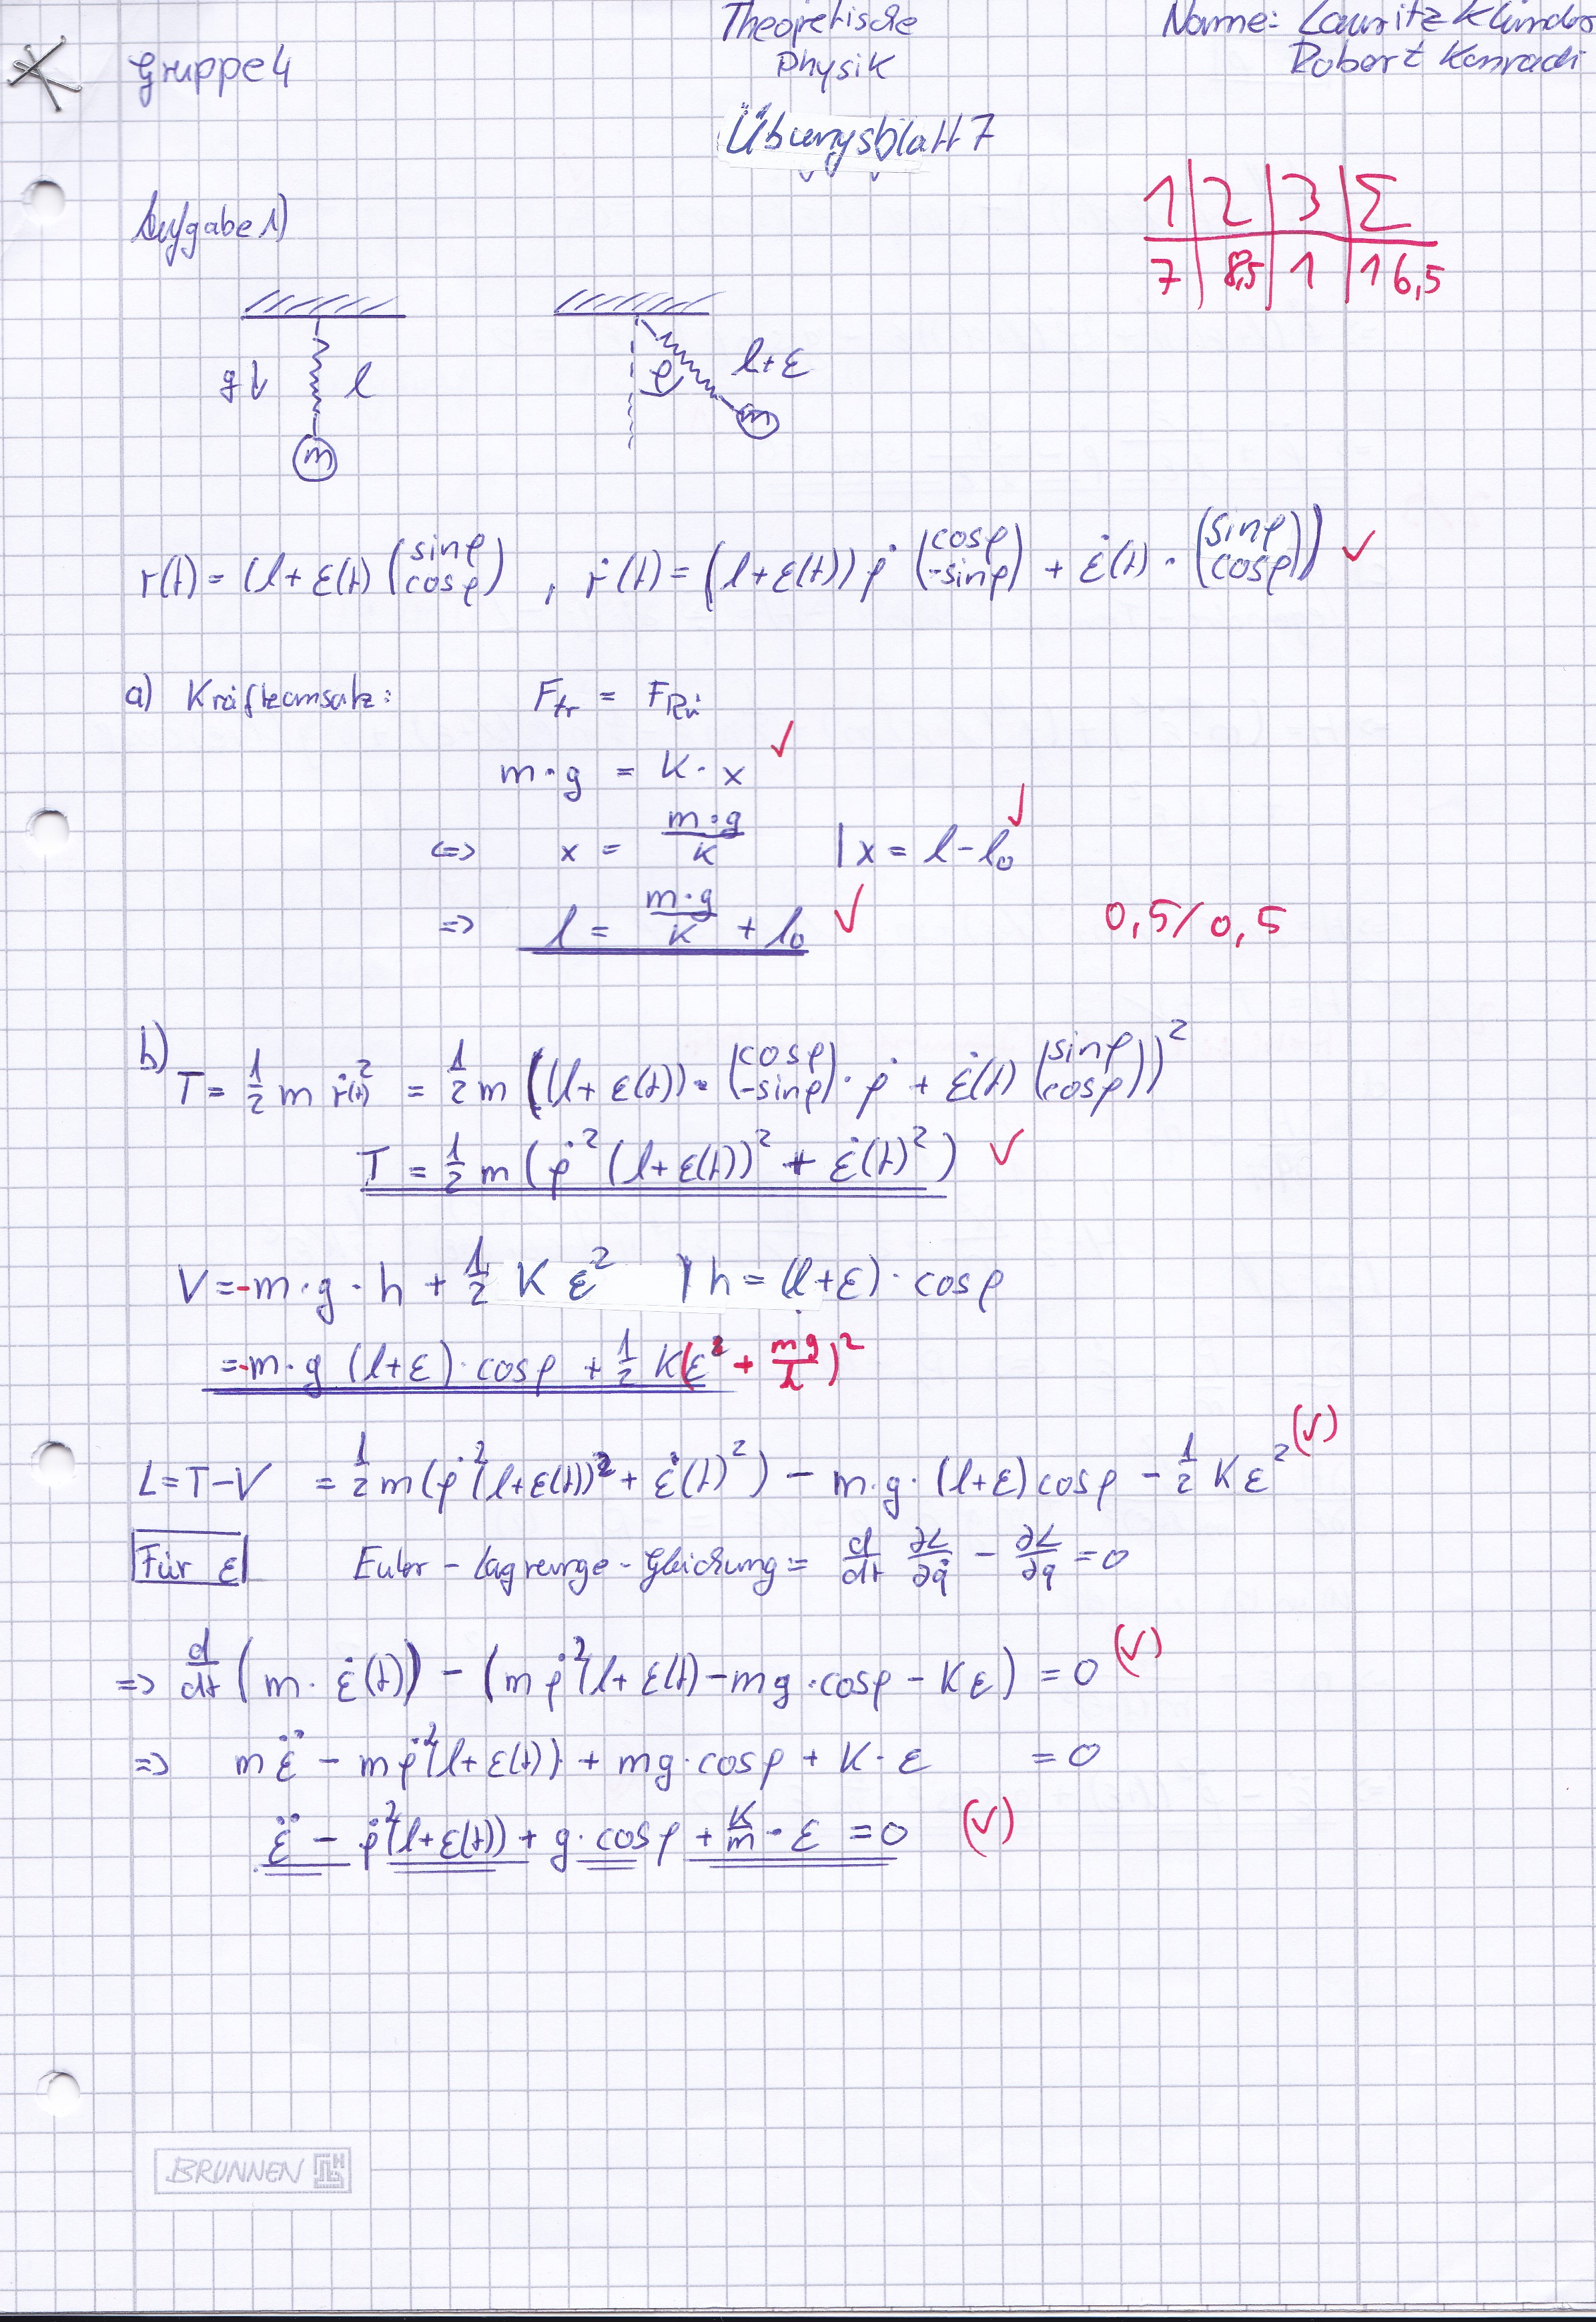 Gruppe 4
Theoretische Physik
Name: Lauritz
Robert Konradi
Übungsblatt 7
1 | 2 | 3 | Σ
7 | 8,5 | 1 | 16,5
Aufgabe 1)
g↓ l m
φ l+ε m
r(t) = (l+ε(t) (sinφ cosφ) , ṙ(t) = (l+ε(t)) φ̇ (cosφ -sinφ) + ε̇(t) · (sinφ cosφ)) ✓
a) Kräfteansatz: F_tr = F_Rü
m·g = K·x ✓
<=> x = m·g/K | x = l - l₀ ✓
=> l = m·g/K + l₀ ✓ 0,5/0,5
b)
T = 1/2 m ṙ(t)² = 1/2 m ((l+ε(t)) · (cosφ -sinφ) · φ̇ + ε̇(t) (sinφ cosφ))²
T = 1/2 m (φ̇² (l+ε(t))² + ε̇(t)²) ✓
V = -m·g·h + 1/2 K ε² | h = (l+ε) · cosφ
= -m·g (l+ε) · cosφ + 1/2 K(ε + mg/k)²
L = T-V = 1/2 m (φ̇² (l+ε(t))² + ε̇(t)²) - m·g·(l+ε) cosφ - 1/2 K ε² (✓)
Für ε Euler-Lagrange-Gleichung = d/dt ∂L/∂q̇ - ∂L/∂q = 0
=> d/dt (m · ε̇(t)) - (m φ̇² (l+ε(t) - mg·cosφ - Kε) = 0 (✓)
=> m ε̈ - m φ̇² (l+ε(t)) + mg·cosφ + K·ε = 0
ε̈ - φ̇² (l+ε(t)) + g·cosφ + K/m · ε = 0 (✓)
BRUNNEN